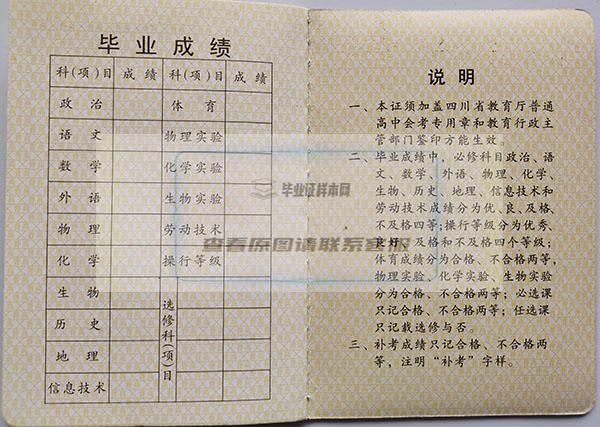 毕业成绩
科(项)目 成绩 科(项)目 成绩
政治 体育
语文 物理实验
数学 化学实验
外语 生物实验
物理 劳动技术
化学 操行等级
生物 选修科(项)目
历史
地理
信息技术
毕业证样本网
查看原图请联系客服
说明
一、本证须加盖四川省教育厅普通
高中会考专用章和教育行政主
管部门签印方能生效。
二、毕业成绩中，必修科目政治、语
文、数学、外语、物理、化学、
生物、历史、地理、信息技术和
劳动技术成绩分为优、良、及格、
不及格四等;操行等级分为优秀、
良好、及格和不及格四个等级;
体育成绩分为合格、不合格两等，
物理实验、化学实验、生物实验
分为合格、不合格两等；必选课
只记合格、不合格两等；任选课
只记载选修与否。
三、补考成绩只记合格、不合格两
等，注明“补考”字样。